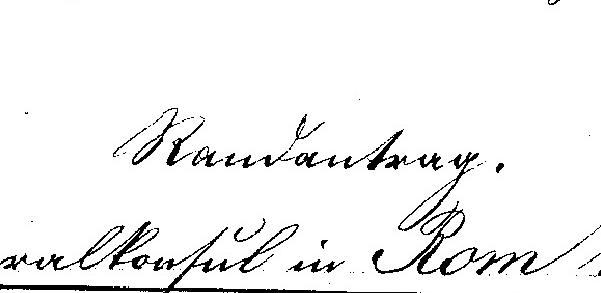 Randantrag.
ralkonsul in Rom